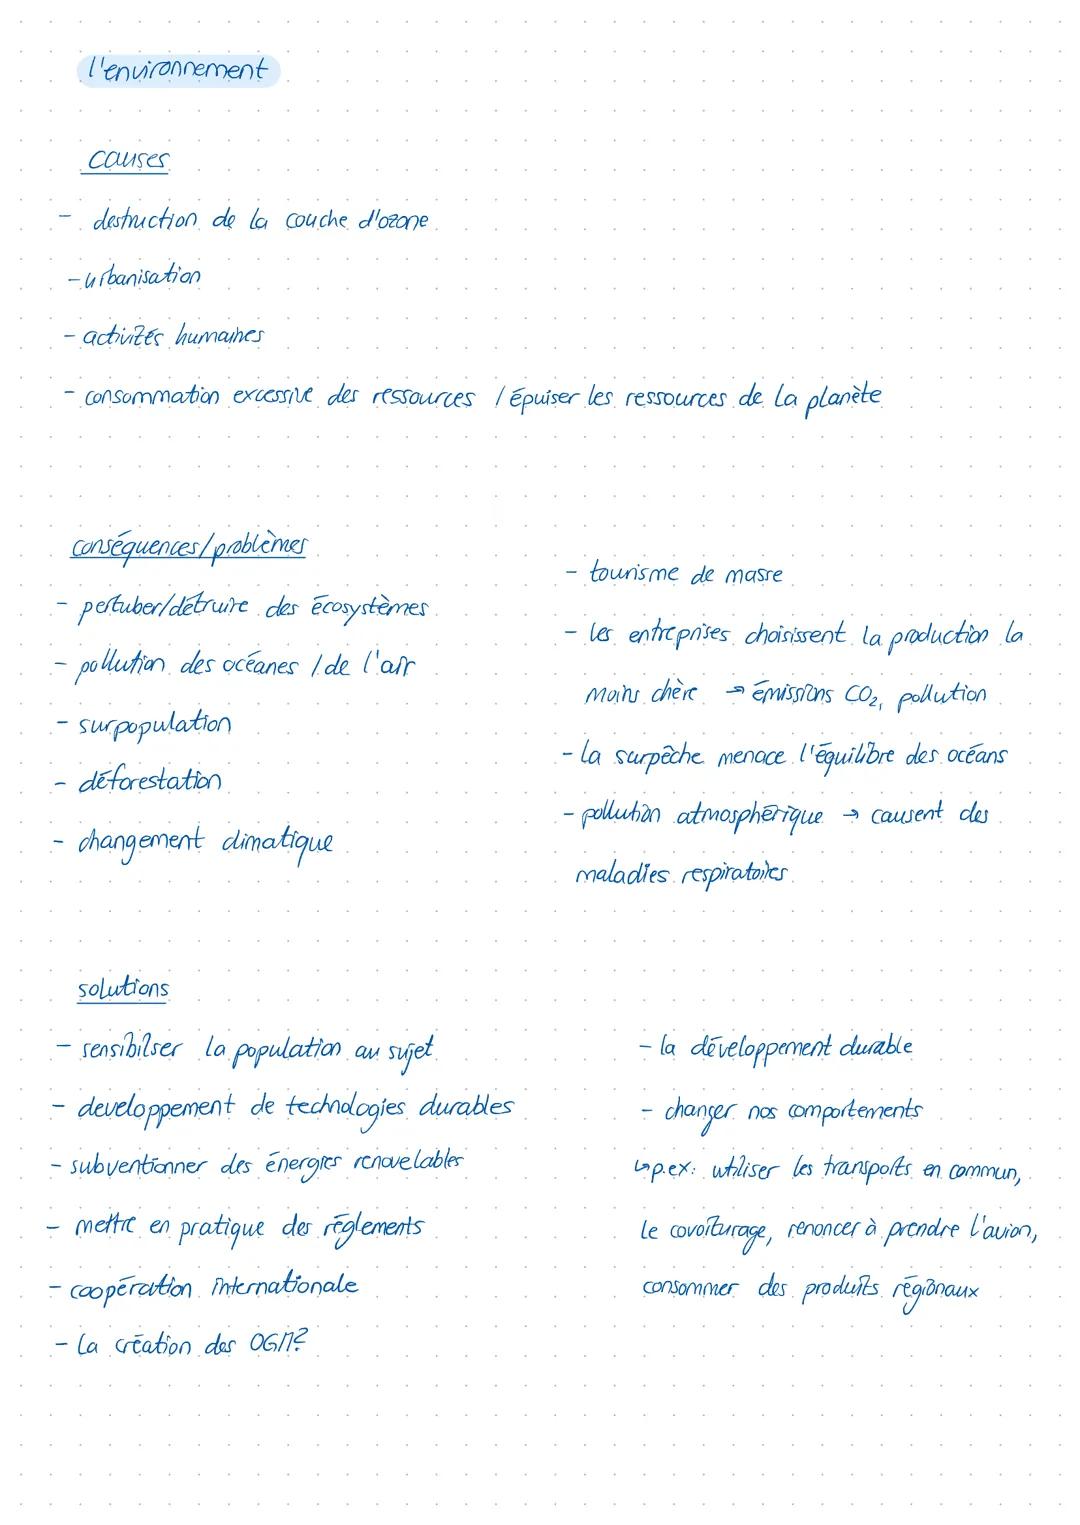 l'environnement
causes
- destruction de la couche d'ozone
- urbanisation
- activités humaines
- consommation excessive des ressources / épuiser les ressources de la planète
conséquences/problèmes
- pertuber/détruire des écosystèmes
- pollution des océanes / de l'air
- surpopulation
- déforestation
- changement climatique
- tourisme de masse
- les entreprises choisissent la production la
moins chère → émissions CO₂, pollution
- la surpêche menace l'équilibre des océans
- pollution atmosphérique → causent des
maladies respiratoires
solutions
- sensibilser la population au sujet
- developpement de technologies durables
- subventionner des énergies renouvelables
- mettre en pratique des réglements
- coopération internationale
- la création des OGM?
- la développement durable
- changer nos comportements
↳ p.ex: utiliser les transports en commun,
le covoiturage, renoncer à prendre l'avion,
consommer des produits régionaux